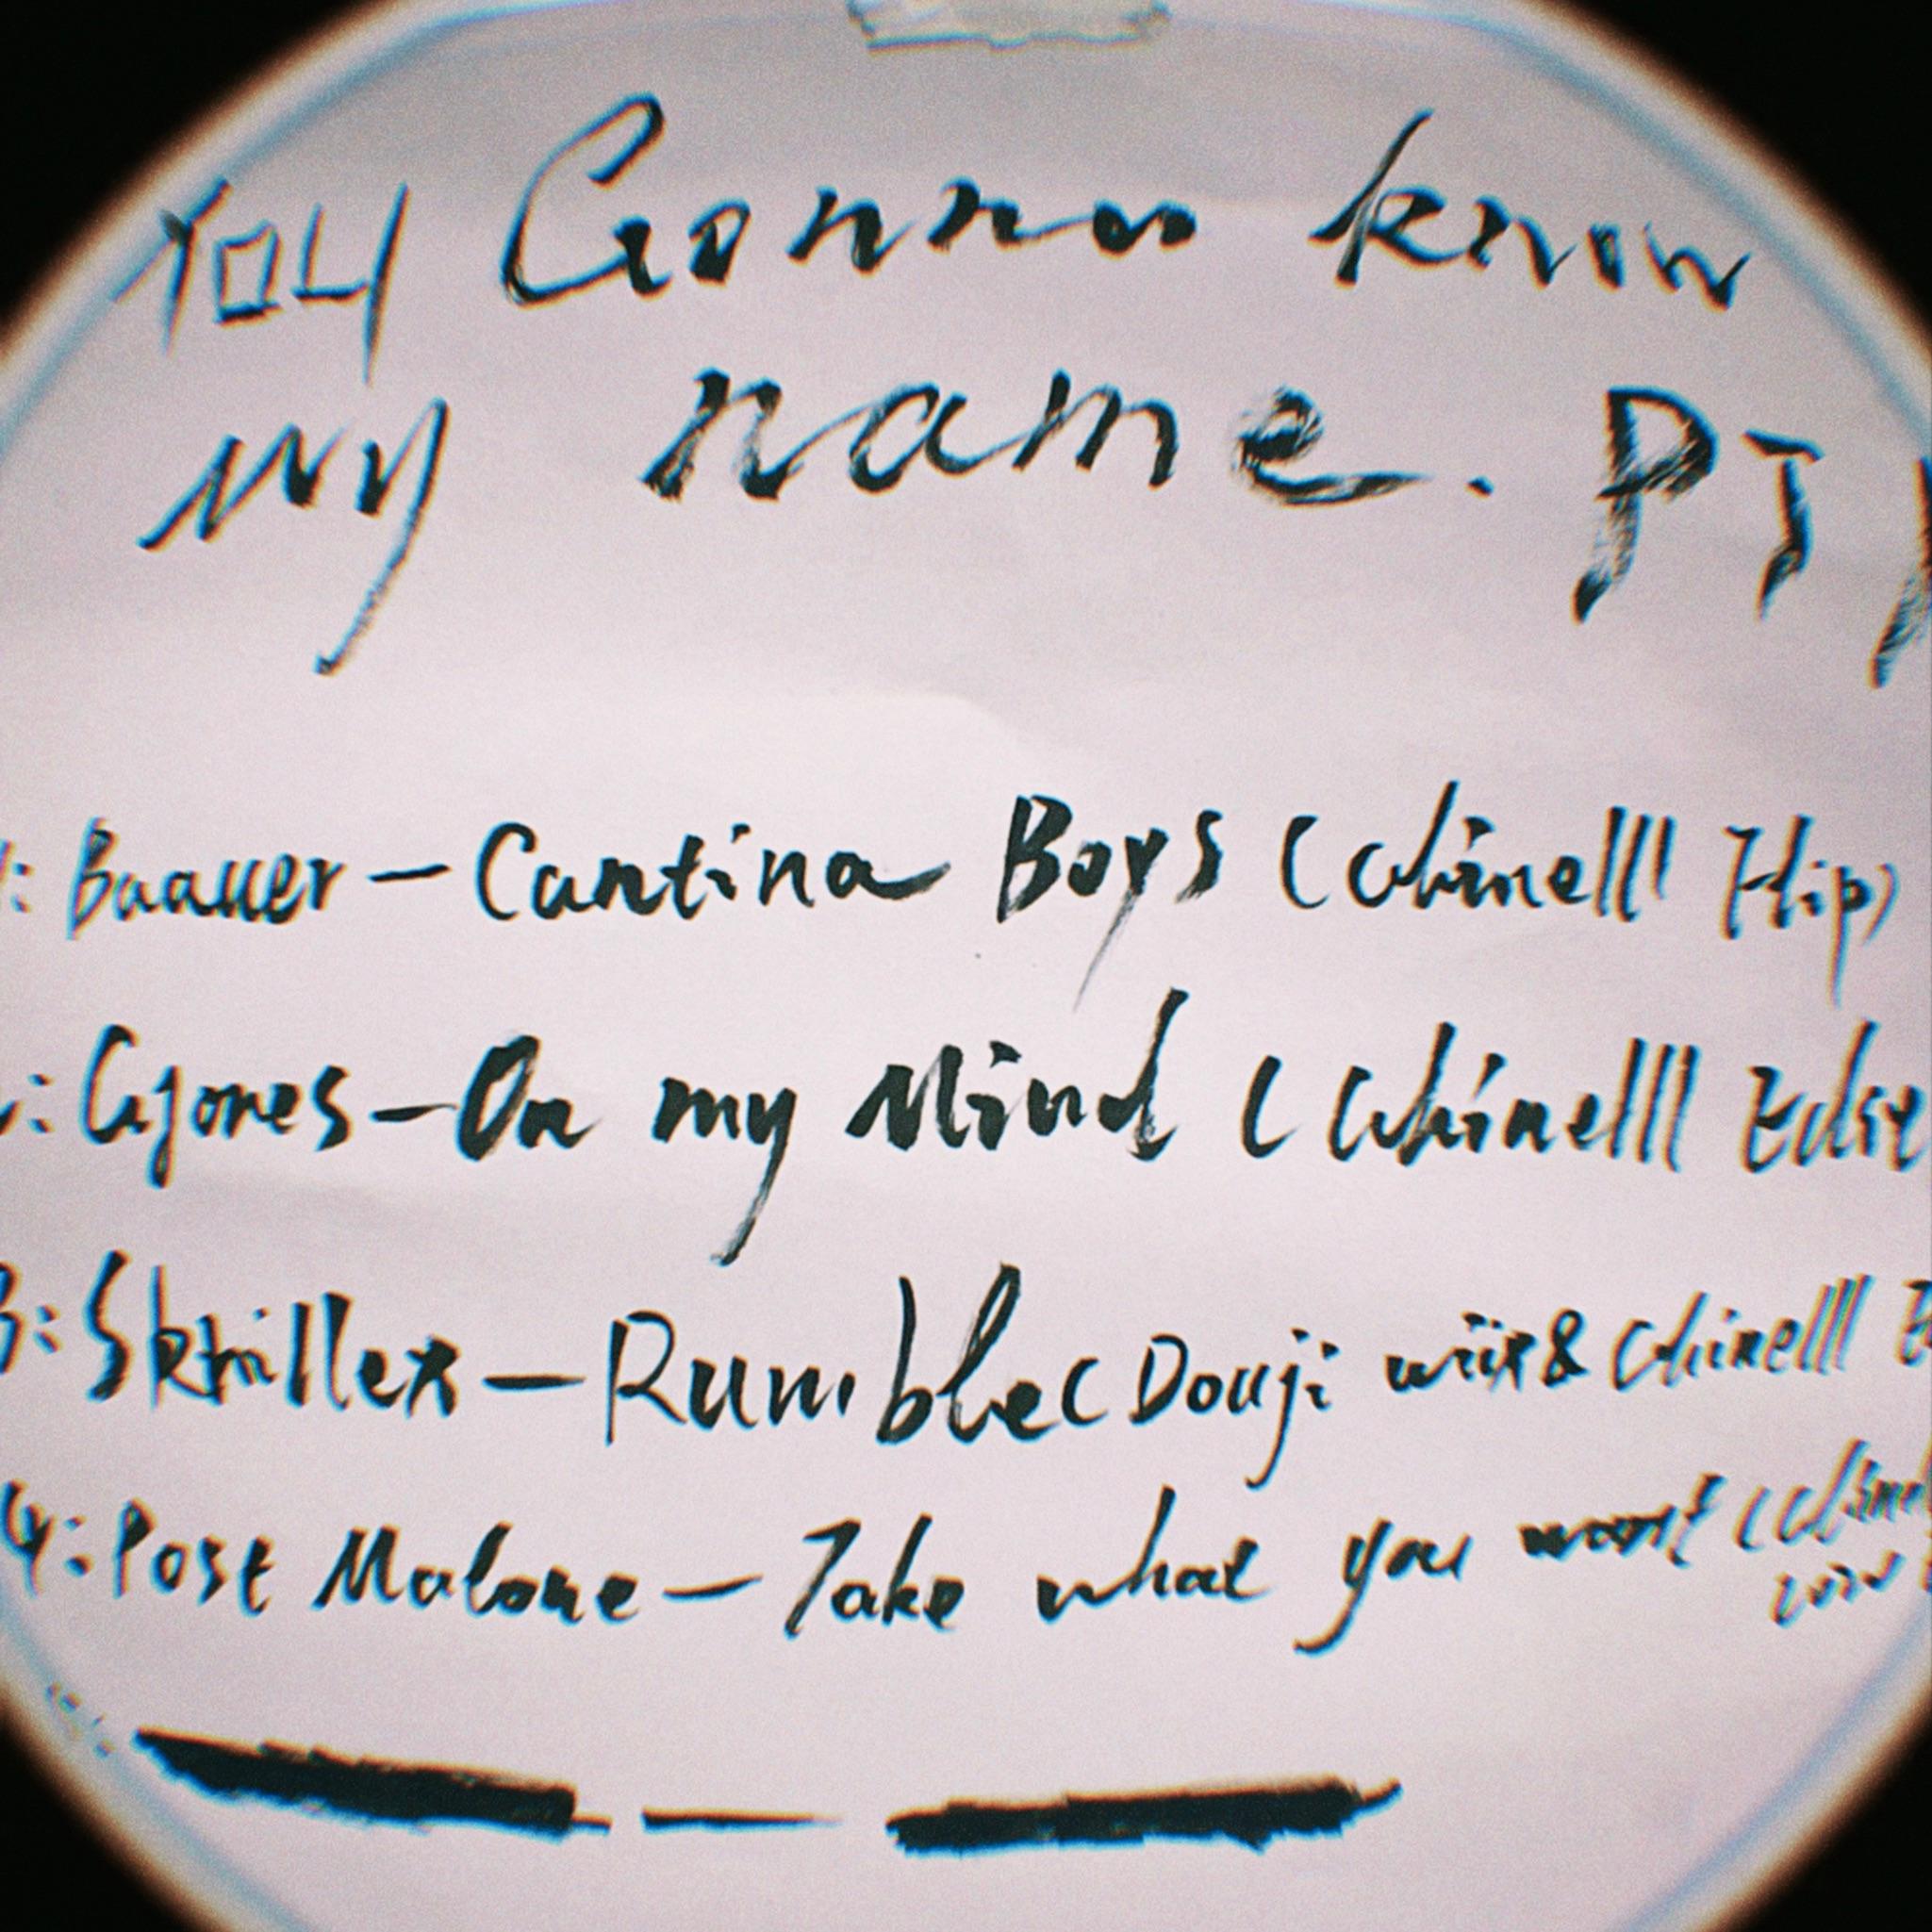 YOU Gonna know
my name. PT1
1: Baauer — Cantina Boys (Whinelll Flip)
: G jones — On my Mind (Whinelll Edit
3: Skrillex — Rumble (Douji wiix & Whinelll E
4: Post Malone — Take what you want (